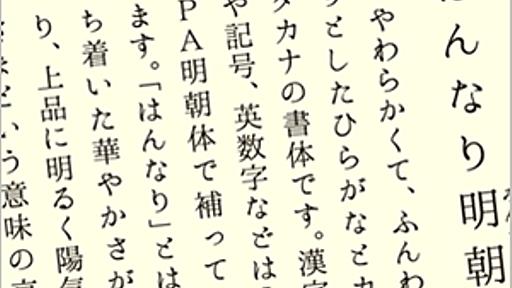 はんなり明朝
やわらかくて、ふんわ
りとしたひらがなとカ
タカナの書体です。漢字
や記号、英数字などは
PA明朝体で補って
ます。「はんなり」とは
ち着いた華やかさが
り、上品に明るく陽気
という意味の